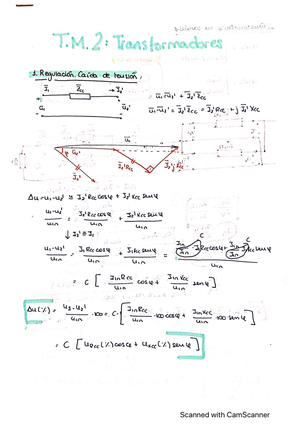 T.M.2: Transformadores
1. Regulación. Caída de tensión.
I̅₁ Z̅cc I₂'
U̅₁ U̅₂'
U̅₁ = U̅₂' + I̅₂' Z̅cc
U̅₁ - U̅₂' = I̅₂' Z̅cc = I̅₂' Rcc + j I̅₂' Xcc
U̅₁
φ U̅₂' I̅₂' Rcc I̅₂' j Xcc
I₂'
Δu = U₁ - U₂' ≅ I₂' Rcc cosφ + I₂' Xcc sen φ
(U₁ - U₂')/U₁n = I₂' Rcc cosφ/U₁n + I₂' Xcc sen φ/U₁n
↓ I₂' ≅ I₁
(U₁ - U₂')/U₁n = I₁ Rcc cosφ/U₁n + I₁ Xcc sen φ/U₁n =
= C [ I₁n Rcc/U₁n cosφ + I₁n Xcc/U₁n sen φ ]
Δu(%) = (U₁ - U₂')/U₁n · 100 = C · [ I₁n Rcc/U₁n · 100 cosφ + I₁n Xcc/U₁n · 100 sen φ ]
= C [ URcc(%) cosφ + UXcc(%) sen φ ]
Scanned with CamScanner